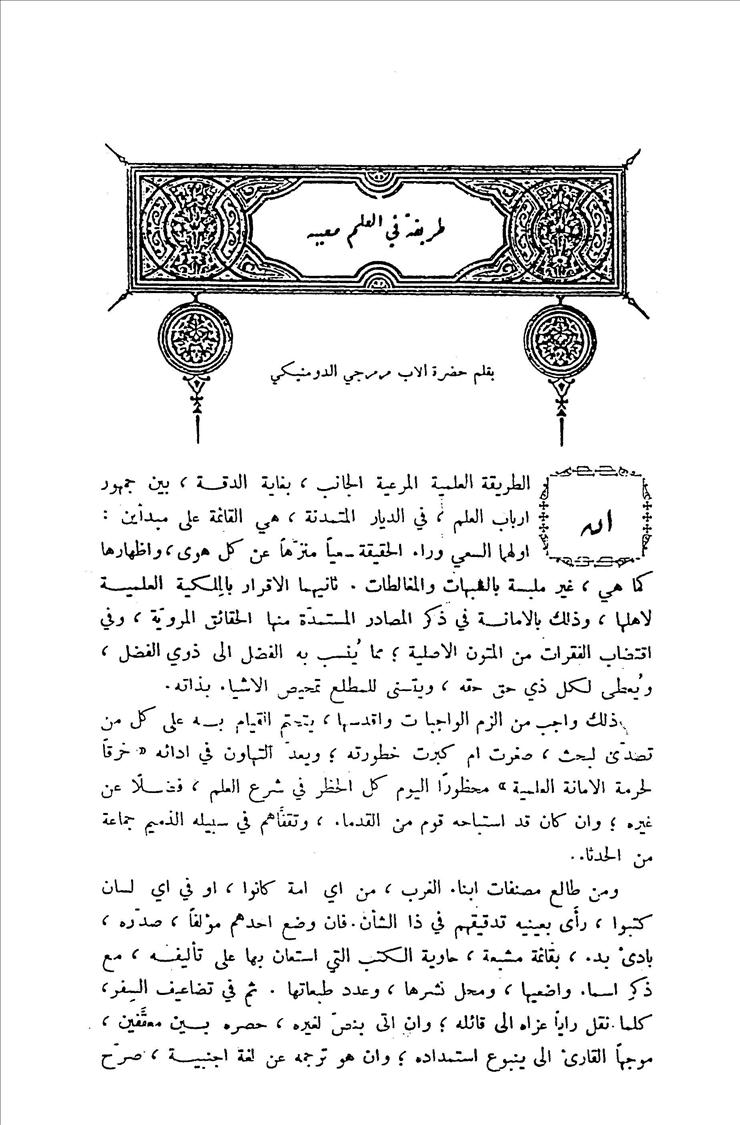 طريقة في العلم معيبة
بقلم حضرة الاب مرمرجي الدومنيكي
ان الطريقة العلمية المرعية الجانب ، بغاية الدقة ، بين جمهور
ارباب العلم ، في الديار المتمدنة ، هي القائمة على مبدأين :
اولهما السعي وراء الحقيقة سعياً منزّهاً عن كل هوى ، واظهارها
كما هي ، غير ملبسة بالشبهات والمغالطات . ثانيهما الاقرار بالملكية العلمية
لاهلها ، وذلك بالامانة في ذكر المصادر المستمدّة منها الحقائق المرويّة ، وفي
اقتضاب الفقرات من المتون الاصلية ؛ مما يُنسب به الفضل الى ذوي الفضل ،
ويُعطى لكل ذي حق حقه ، ويتسنى للمطلع تمحيص الاشياء بذاته.
ذلك واجب من الزم الواجبات واقدسها ، يتحتم القيام به على كل من
تصدّى لبحث ، صغرت ام كبرت خطورته ؛ ويعدّ التهاون في ادائه « خرقاً
لحرمة الامانة العلمية » محظورًا اليوم كل الحظر في شرع العلم ، فضلًا عن
غيره ؛ وان كان قد استباحه قوم من القدماء ، وتقفّاهم في سبيله الذميم جماعة
من الحدثاء.
ومن طالع مصنفات ابناء الغرب ، من اي امة كانوا ، او في اي لسان
كتبوا ، رأى بعينيه تدقيقهم في ذا الشأن. فان وضع احدهم مؤلفاً ، صدّره ،
بادئ بدء ، بقائمة مشبعة ، حاوية الكتب التي استعان بها على تأليفه ، مع
ذكر اسماء واضعيها ، ومحل نشرها ، وعدد طبعاتها . ثم في تضاعيف السِفر ،
كلما نقل راياً عزاه الى قائله ؛ وان اتى بنصّ لغيره ، حصره بين معقَّفين ،
موجهاً القارئ الى ينبوع استمداده ؛ وان هو ترجمه عن لغة اجنبية ، صرّح